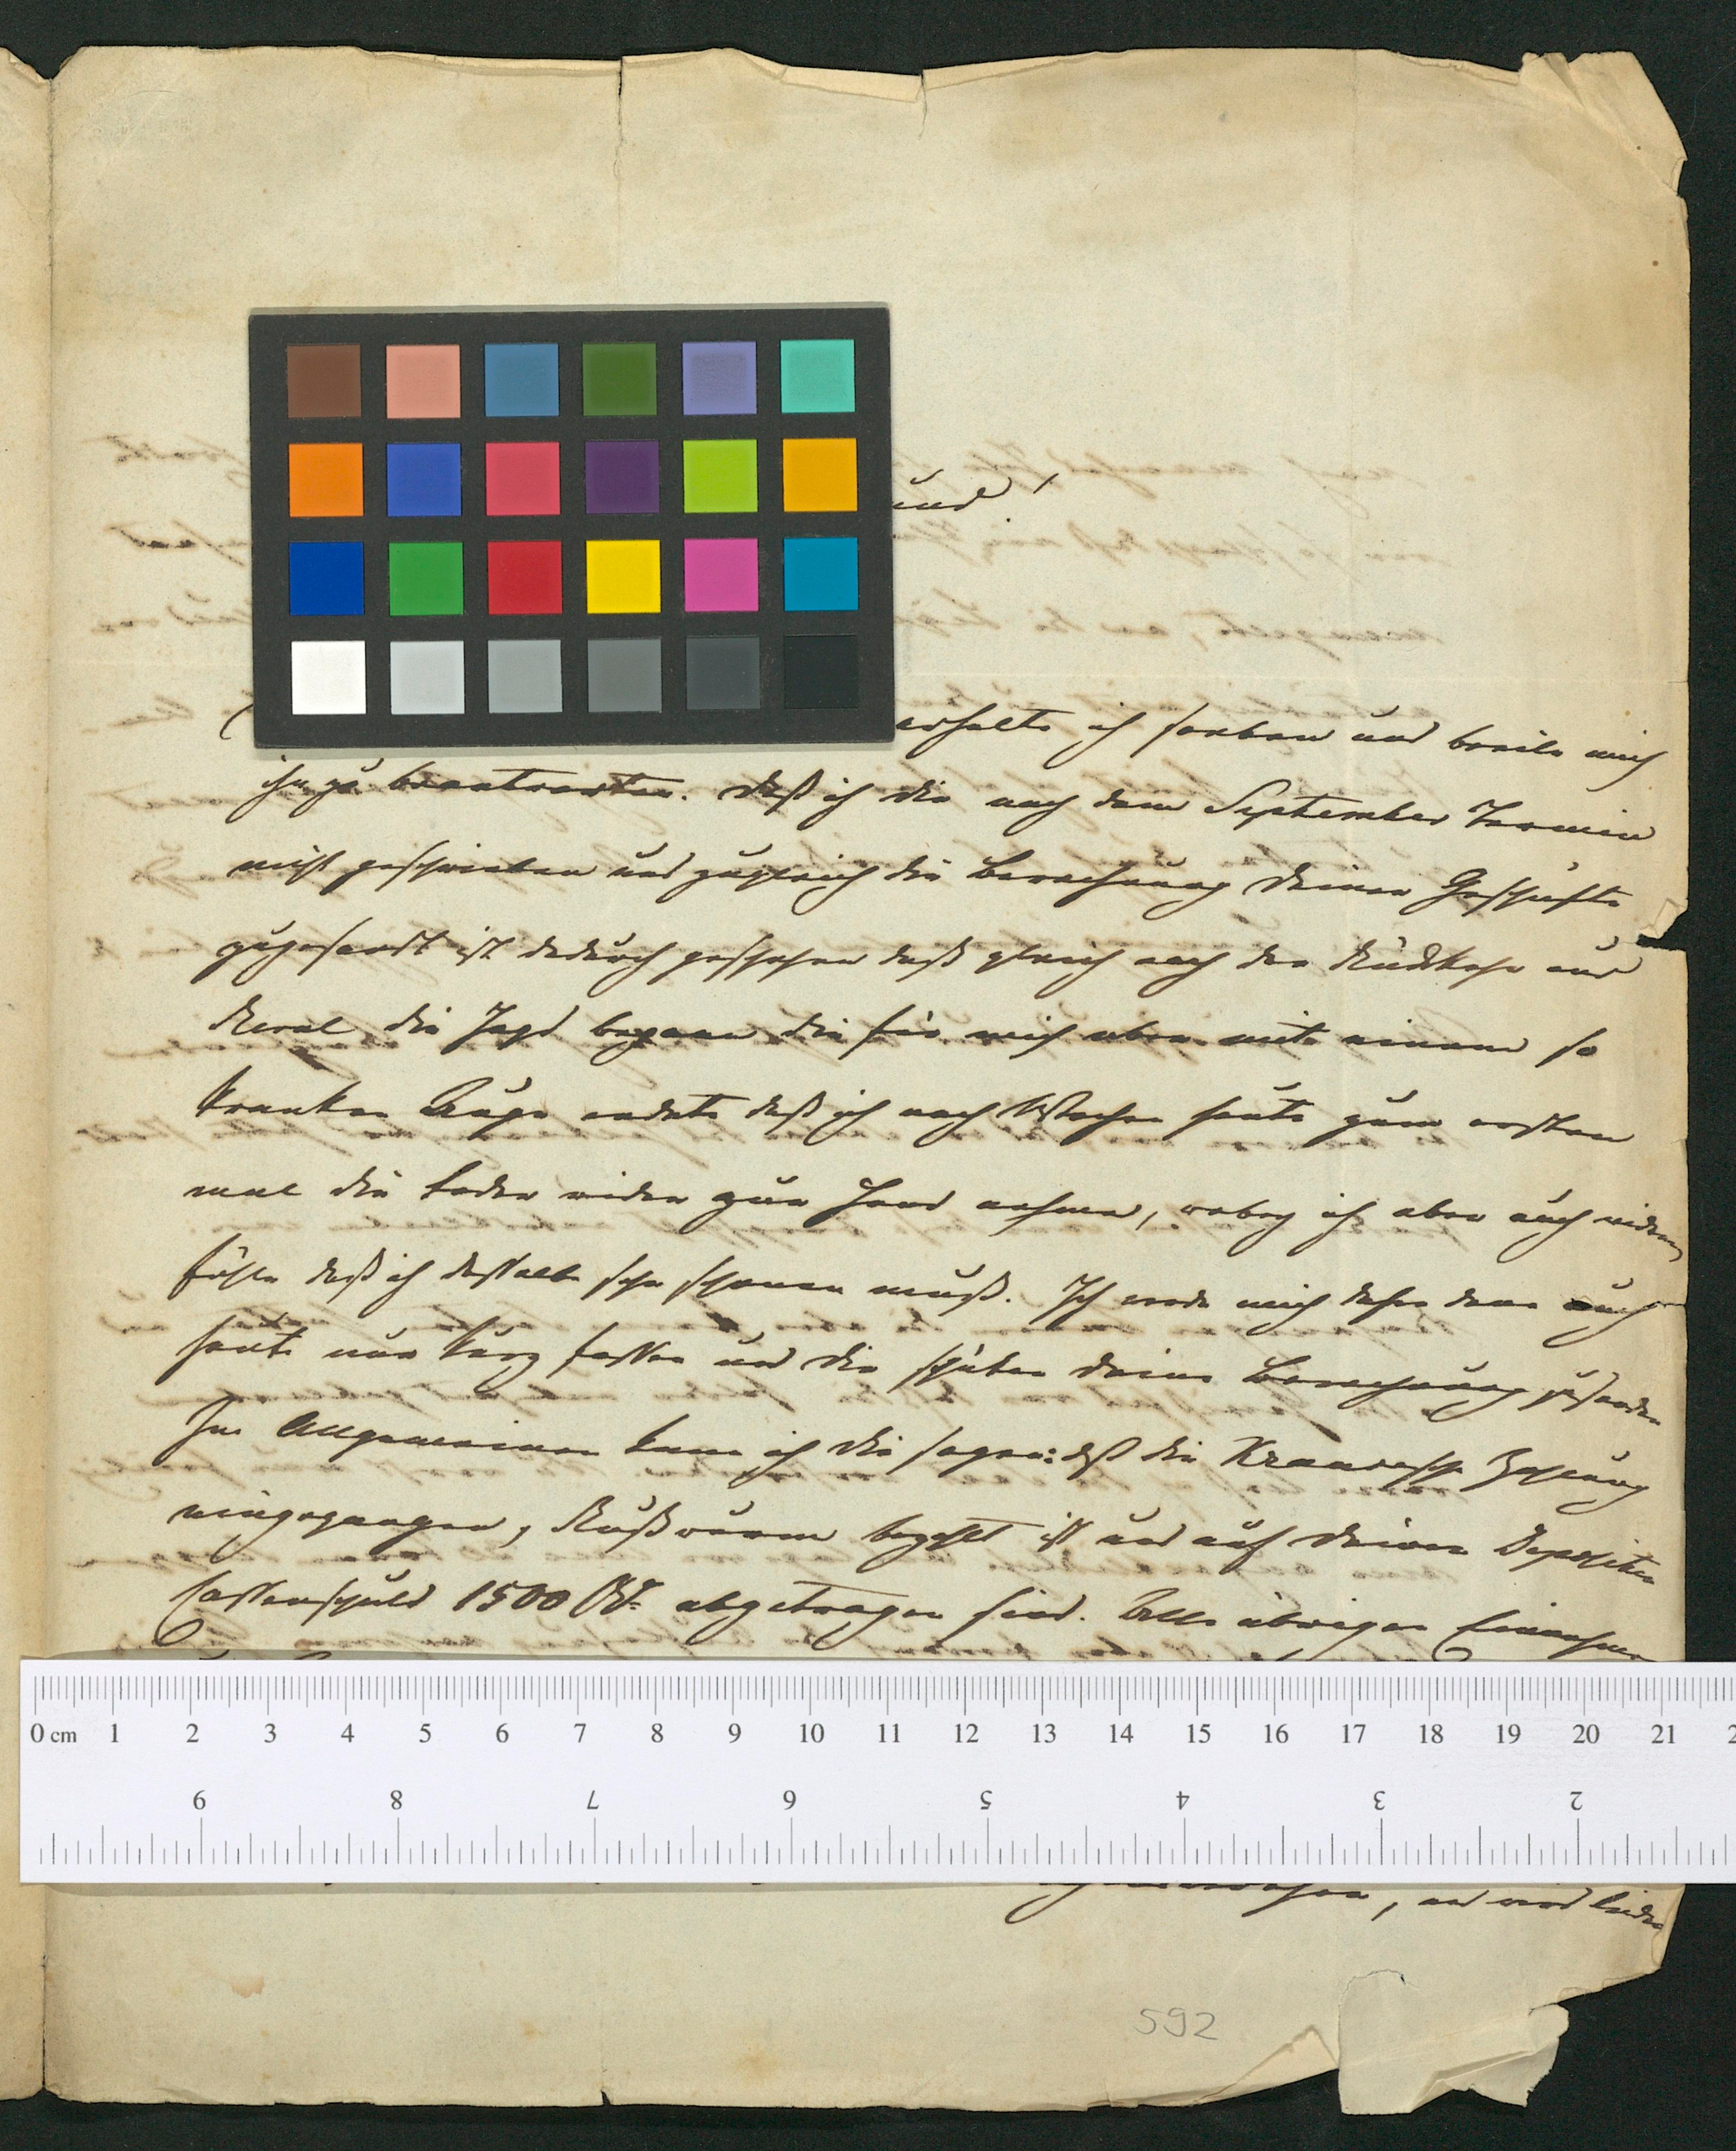 und!
erhalte ich soeben und beeile mich
ihn zu beantworten. Daß ich dir nach dem September Termin
nicht geschrieben und zugleich die Berechnung deiner Geschäfte
zugesandt ist dadurch geschehen daß gleich nach der Rückkehr aus
Reval die Jagd begann die für mich aber mit einem so
kranken Auge endete daß ich nach Wochen heute zum ersten
mal die Feder wider zur Hand nehme, wobey ich aber auch
fühle daß ich dasselbe sehr schonen muß. Ich werde mich daher denn auch
heute nur kurz fassen und dir später deine Berechnung zusenden
Im Allgemeinen kann ich dir sagen: daß die Zahlung
eingegangen, Rußwurm bezahlt ist und auf deiner Depositen
Cassenschuld 1500 abgetragen sind. Alle übrigen Einnahmen
0 cm 1 2 3 4 5 6 7 8 9 10 11 12 13 14 15 16 17 18 19 20 21 2
9 8 7 6 5 4 3 2
, und wird leider
592